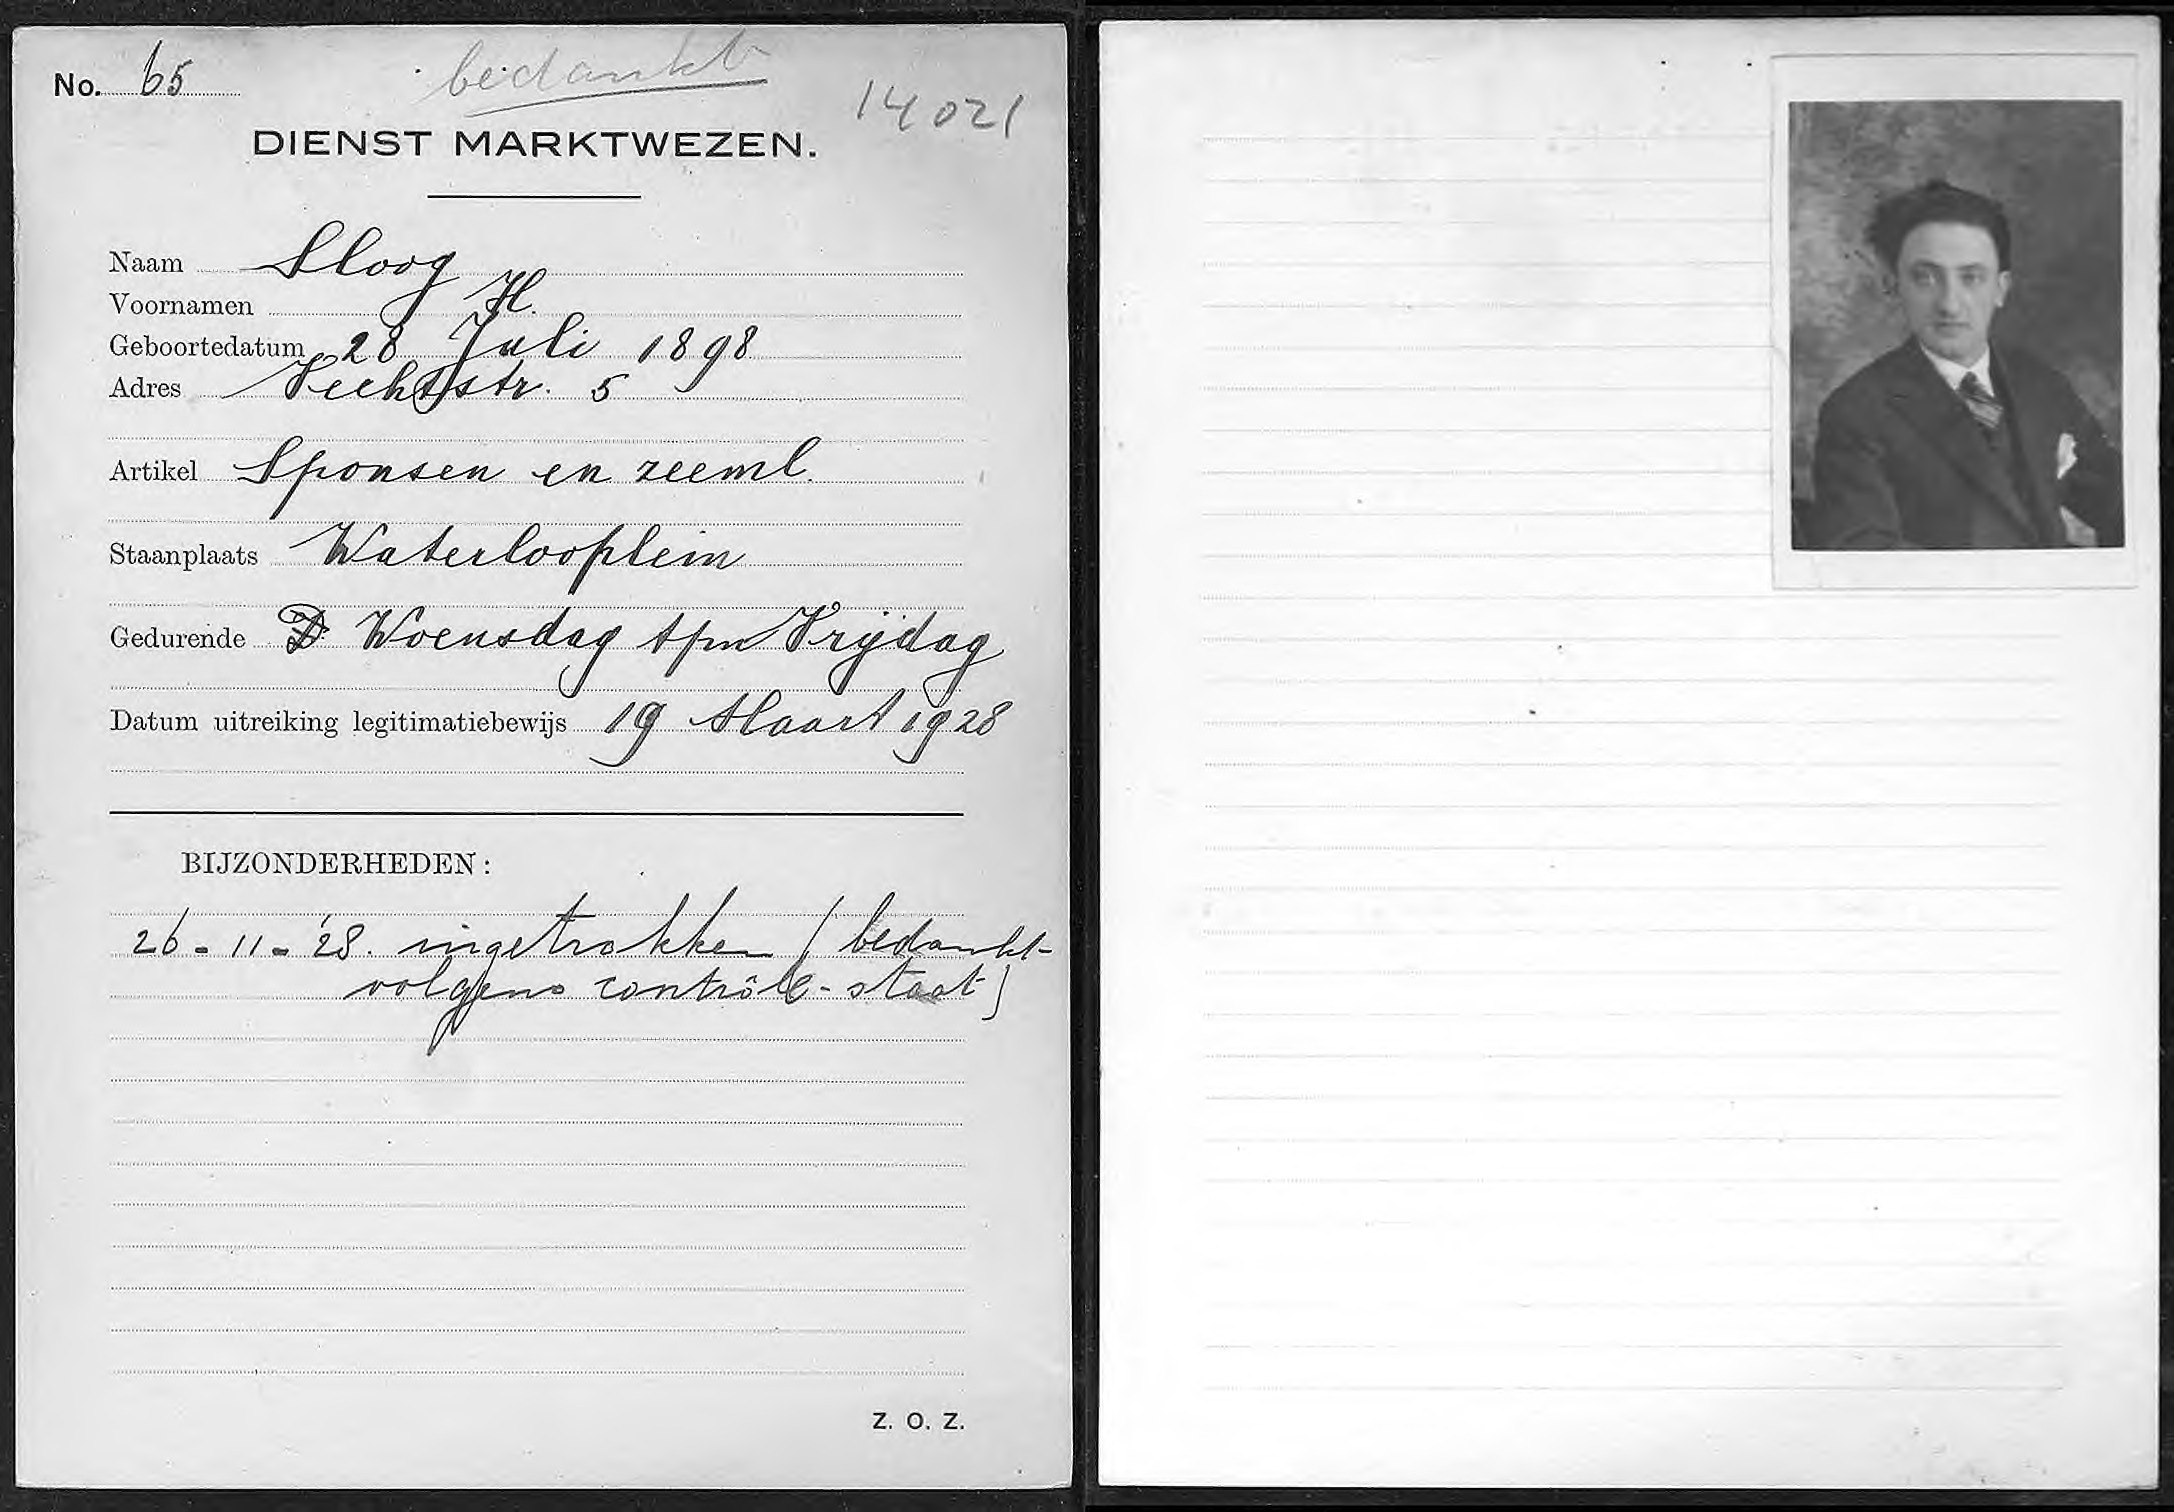 No. 65
bedankt
14021
DIENST MARKTWEZEN.
Naam Sloog
Voornamen H.
Geboortedatum 28 Juli 1898
Adres Vechtstr. 5
Artikel Sponsen en zeeml.
Staanplaats Waterlooplein
Gedurende Woensdag t/m Vrijdag
Datum uitreiking legitimatiebewijs 19 Maart 1928
BIJZONDERHEDEN:
26-11-'28. ingetrokken (bedankt-
volgens contrôle-staat)
Z. O. Z.